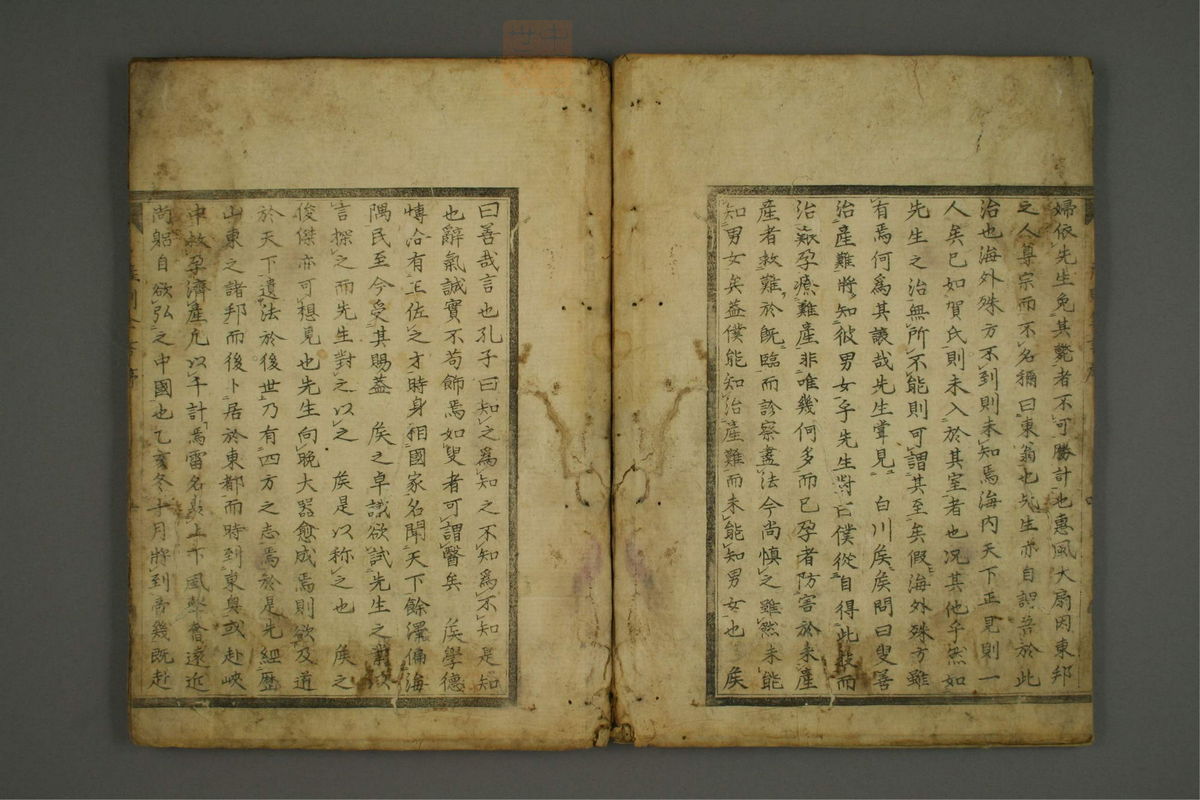 婦依先生免其斃者不可勝計也惠風大扇因東邦
之人尊宗而不名稱曰東翁也先生亦自謂吾於此
治也海外殊方不到則未知焉海内天下正見則一
人矣已如賀氏則未入於其室者也况其他乎然如
先生之治無所不能則可謂其至矣假海外殊方雖
有焉何為其讓哉先生嘗見 白川矦矦問曰叟善
治產難將知彼男女乎先生對曰僕從自得此技而
治艱孕療難產非唯幾何多而已孕者防害於未產
產者救難於既臨而診察盡法今尚慎之雖然未能
知男女矣蓋僕能知治產難而未能知男女也 矦
曰善哉言也孔子曰知之為知之不知為不知是知
也辭氣誠實不苟飾焉如叟者可謂醫矣 矦學德
博洽有王佐之才時身相國家名聞天下餘澤偏海
隅民至今受其賜蓋 矦之卓識欲試先生之
言探之而先生對之以之 矦是以称之也 矦之
俊傑亦可想見也先生向晚大器愈成焉則欲及道
於天下遺法於後世乃有四方之志焉於是先經歷
山東之諸邦而後卜居於東都而時到東奥或赴峽
中救孕濟產凡以千計焉雷名裴上下風聲會遠近
尚躬自欲弘之中國也乙亥冬十月將到帝畿既赴